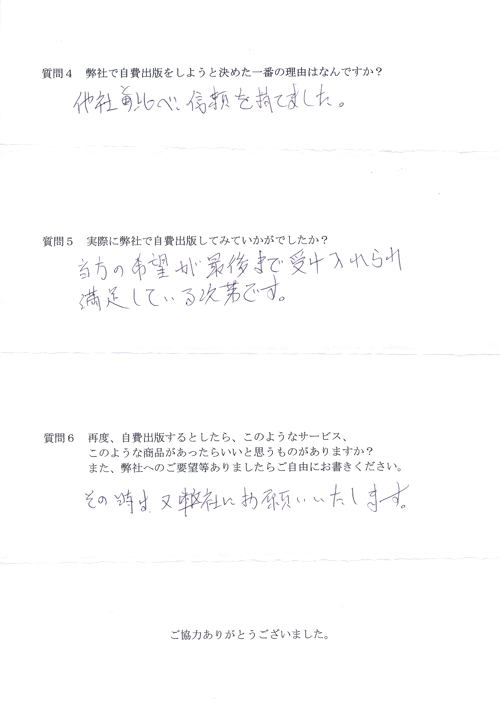 質問４　弊社で自費出版をしようと決めた一番の理由はなんですか？
他社に比べ、信頼を持てました。
質問５　実際に弊社で自費出版してみていかがでしたか？
当方の希望が最後まで受け入れられ
満足している次第です。
質問６　再度、自費出版するとしたら、このようなサービス、
このような商品があったらいいと思うものがありますか？
また、弊社へのご要望等ありましたらご自由にお書きください。
その時は、又弊社にお願いいたします。
ご協力ありがとうございました。